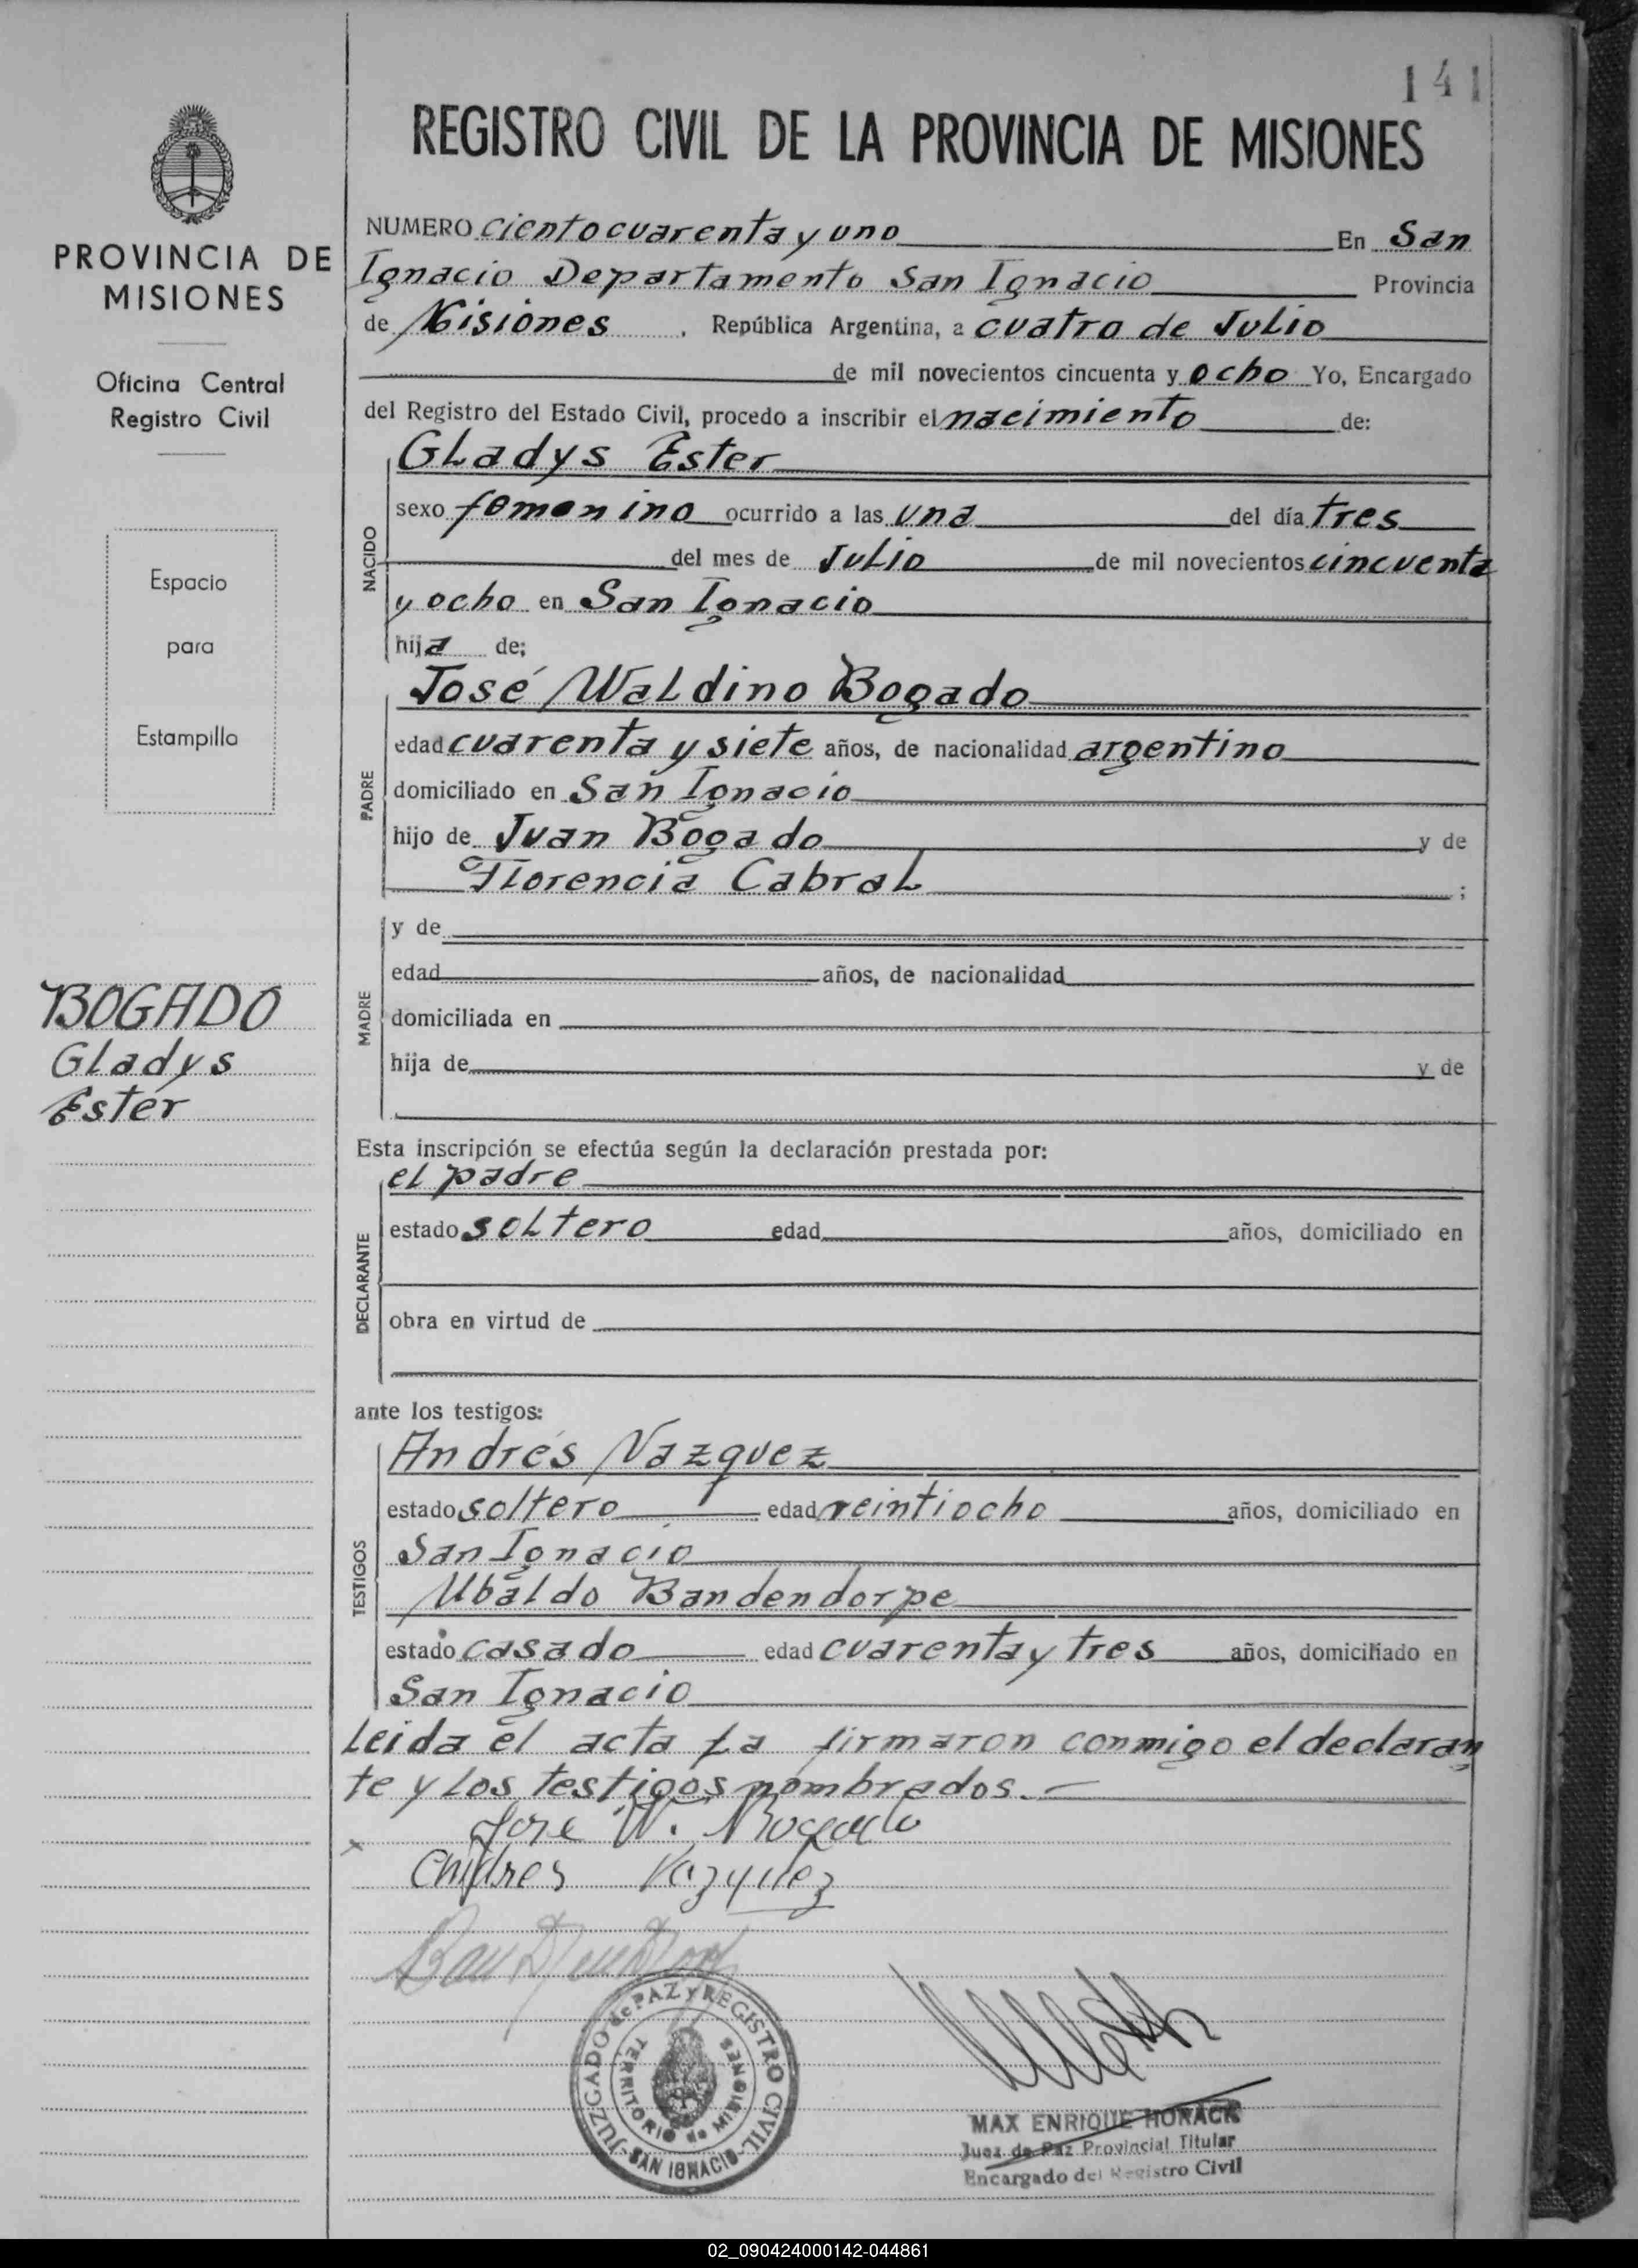 141
REGISTRO CIVIL DE LA PROVINCIA DE MISIONES
PROVINCIA DE
MISIONES
Oficina Central
Registro Civil
Espacio
para
Estampilla
BOGADO
Gladys
Ester
NUMERO ciento cuarenta y uno En San
Ignacio Departamento San Ignacio Provincia
de Misiones , República Argentina, a cuatro de Julio
de mil novecientos cincuenta y ocho Yo, Encargado
del Registro del Estado Civil, procedo a inscribir el nacimiento de:
NACIDO
Gladys Ester
sexo femenino ocurrido a las una del día tres
del mes de Julio de mil novecientos cincuenta
y ocho en San Ignacio
hija de;
PADRE
José Waldino Bogado
edad cuarenta y siete años, de nacionalidad argentino
domiciliado en San Ignacio
hijo de Juan Bogado y de
Florencia Cabral ;
MADRE
y de
edad años, de nacionalidad
domiciliada en
hija de y de
Esta inscripción se efectúa según la declaración prestada por:
DECLARANTE
el padre
estado soltero edad años, domiciliado en
obra en virtud de
ante los testigos:
TESTIGOS
Andrés Vazquez
estado soltero edad veintiocho años, domiciliado en
San Ignacio
Ubaldo Bandendorpe
estado casado edad cuarenta y tres años, domiciliado en
San Ignacio
Leida el acta la firmaron conmigo el declaran
te y los testigos nombrados. —
Jose W. Bogado
Andres Vazquez
JUZGADO de PAZ y REGISTRO CIVIL
TERRITORIO de MISIONES
SAN IGNACIO
MAX ENRIQUE HORACK
Juez de Paz Provincial Titular
Encargado del Registro Civil
02_090424000142-044861